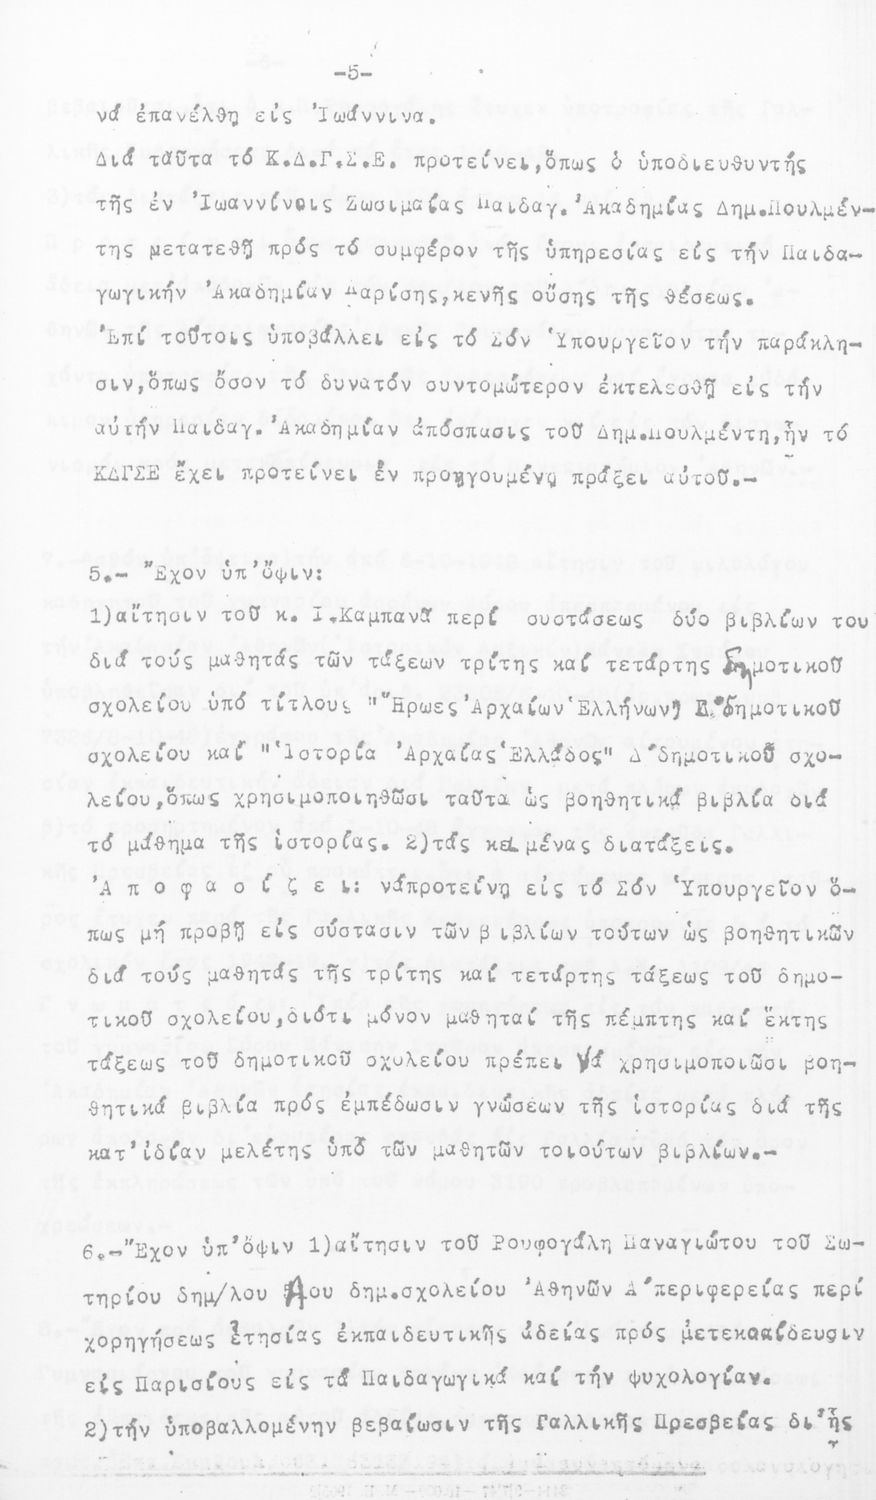 -5-
νά ἐπανέλθῃ εἰς Ἰωάννινα.
Διά ταῦτα τό Κ.Δ.Γ.Σ.Ε. προτείνει,ὅπως ὁ ὑποδιευθυντής
τῆς ἐν Ἰωαννίνοις Ζωσιμαίας Παιδαγ. Ἀκαδημίας Δημ.Πουλμέν-
της μετατεθῇ πρός τό συμφέρον τῆς ὑπηρεσίας εἰς τήν Παιδα-
γωγικήν Ἀκαδημίαν Λαρίσης,κενῆς οὔσης τῆς θέσεως.
Ἐπί τούτοις ὑποβάλλει εἰς τό Σόν Ὑπουργεῖον τήν παράκλη-
σιν,ὅπως ὅσον τό δυνατόν συντομώτερον ἐκτελεσθῇ εἰς τήν
αὐτήν Παιδαγ. Ἀκαδημίαν ἀπόσπασις τοῦ Δημ.Πουλμέντη,ἥν τό
ΚΔΓΣΕ ἔχει προτείνει ἐν προηγουμένῃ πράξει αὐτοῦ.-
5.- Ἔχον ὑπ'ὄψιν:
1)αἴτησιν τοῦ κ. Ι.Καμπανᾶ περί συστάσεως δύο βιβλίων του
διά τούς μαθητάς τῶν τάξεων τρίτης καί τετάρτης δημοτικοῦ
σχολείου ὑπό τίτλους "Ἥρωες Ἀρχαίων Ἑλλήνων) Γ'δημοτικοῦ
σχολείου καί "Ἱστορία Ἀρχαίας Ἑλλάδος" Δ'δημοτικοῦ σχο-
λείου,ὅπως χρησιμοποιηθῶσι ταῦτα ὡς βοηθητικά βιβλία διά
τό μάθημα τῆς ἱστορίας. 2)τάς κειμένας διατάξεις.
Ἀ π ο φ α σ ί ζ ε ι: νάπροτείνῃ εἰς τό Σόν Ὑπουργεῖον ὅ-
πως μή προβῇ εἰς σύστασιν τῶν βιβλίων τούτων ὡς βοηθητικῶν
διά τούς μαθητάς τῆς τρίτης καί τετάρτης τάξεως τοῦ δημο-
τικοῦ σχολείου,διότι μόνον μαθηταί τῆς πέμπτης καί ἕκτης
τάξεως τοῦ δημοτικοῦ σχολείου πρέπει νά χρησιμοποιῶσι βοη-
θητικά βιβλία πρός ἐμπέδωσιν γνώσεων τῆς ἱστορίας διά τῆς
κατ'ἰδίαν μελέτης ὑπό τῶν μαθητῶν τοιούτων βιβλίων.-
6.-Ἔχον ὑπ'ὄψιν 1)αἴτησιν τοῦ Ρουφογάλη Παναγιώτου τοῦ Σω-
τηρίου δημ/λου δημ.σχολείου Ἀθηνῶν Α'περιφερείας περί
χορηγήσεως ἐτησίας ἐκπαιδευτικῆς ἀδείας πρός μετεκπαίδευσιν
εἰς Παρισίους εἰς τά Παιδαγωγικά καί τήν ψυχολογίαν.
2)τήν ὑποβαλλομένην βεβαίωσιν τῆς Γαλλικῆς Πρεσβείας δι'ἧς